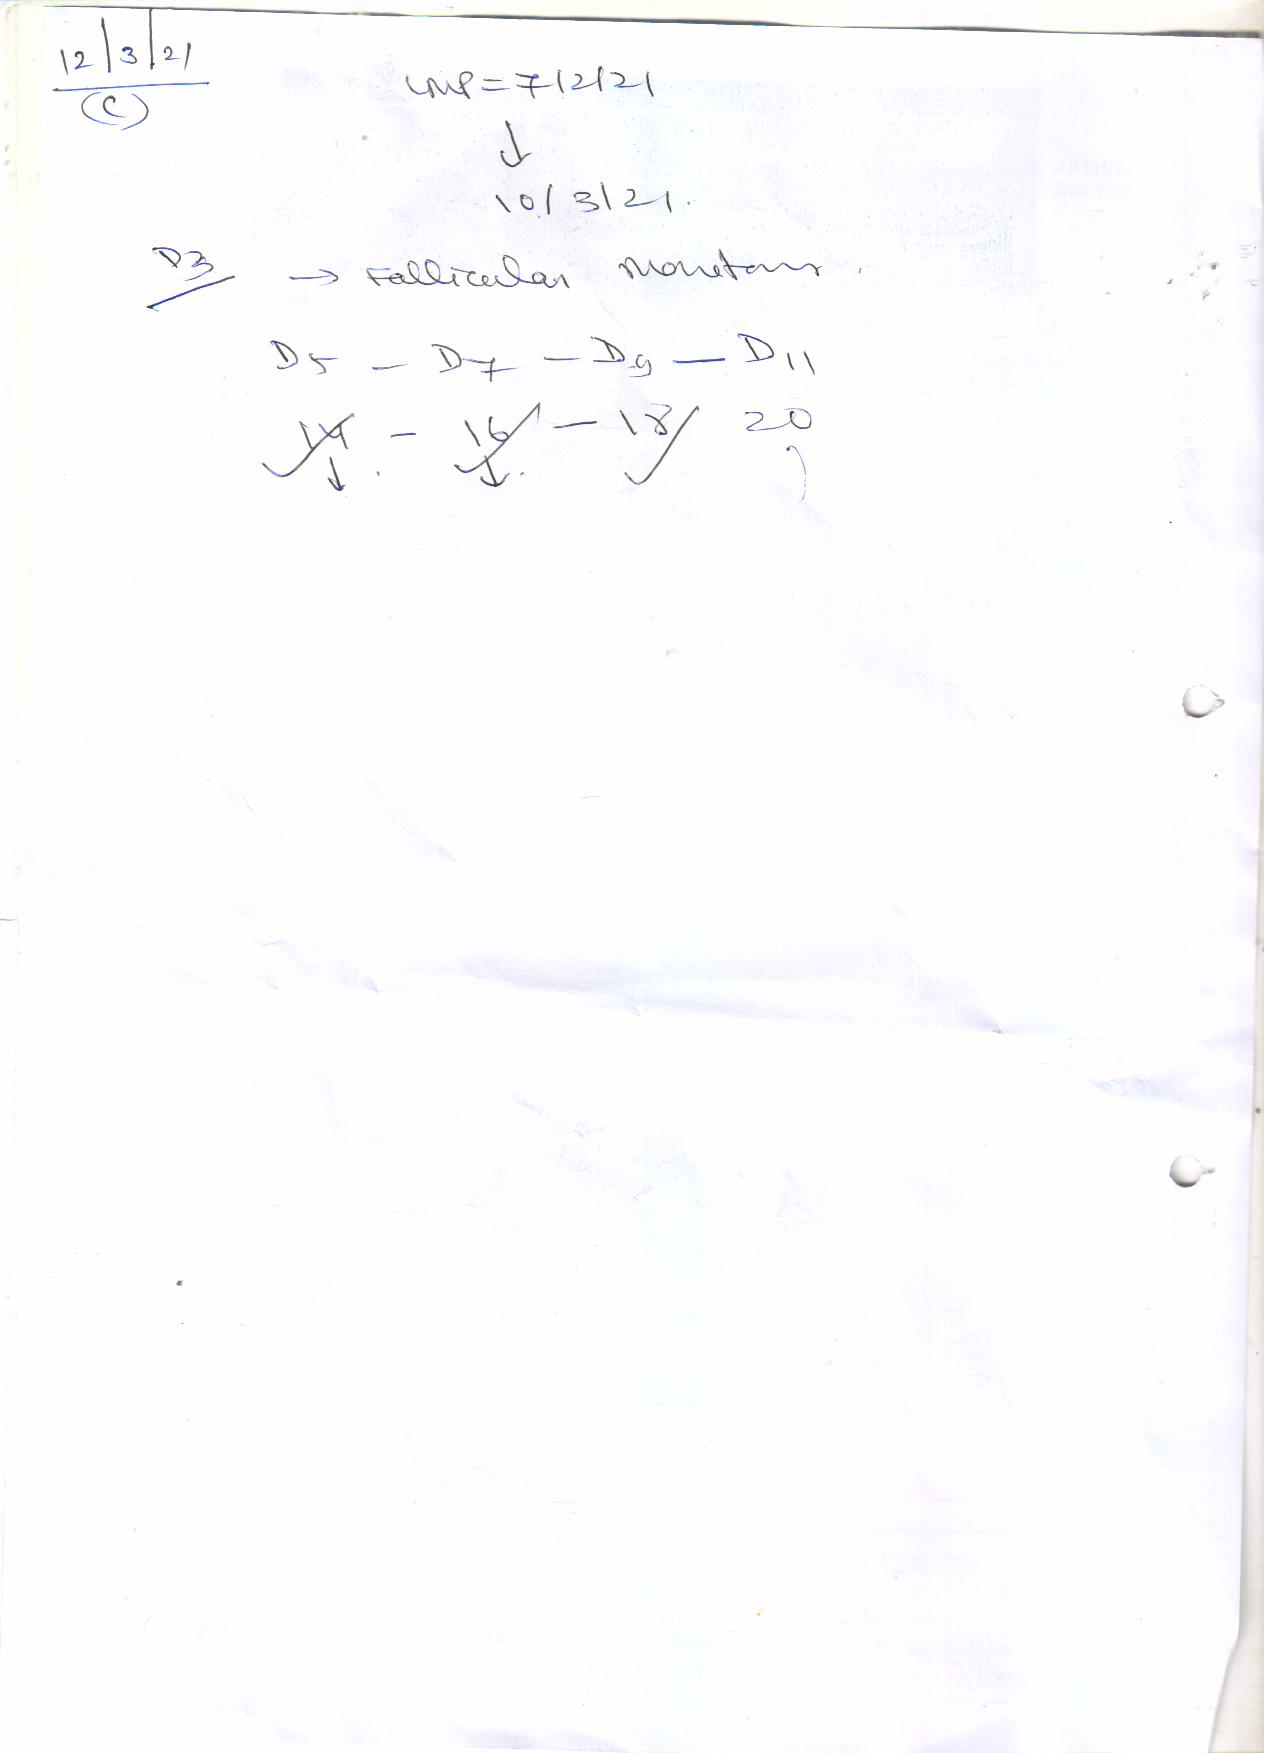 12/3/21
(C)
LMP = 7/2/21
↓
10/3/21.
D3 → Follicular Monitoring.
D5 – D7 – D9 – D11
14 – 16 – 18 20
↓ ↓